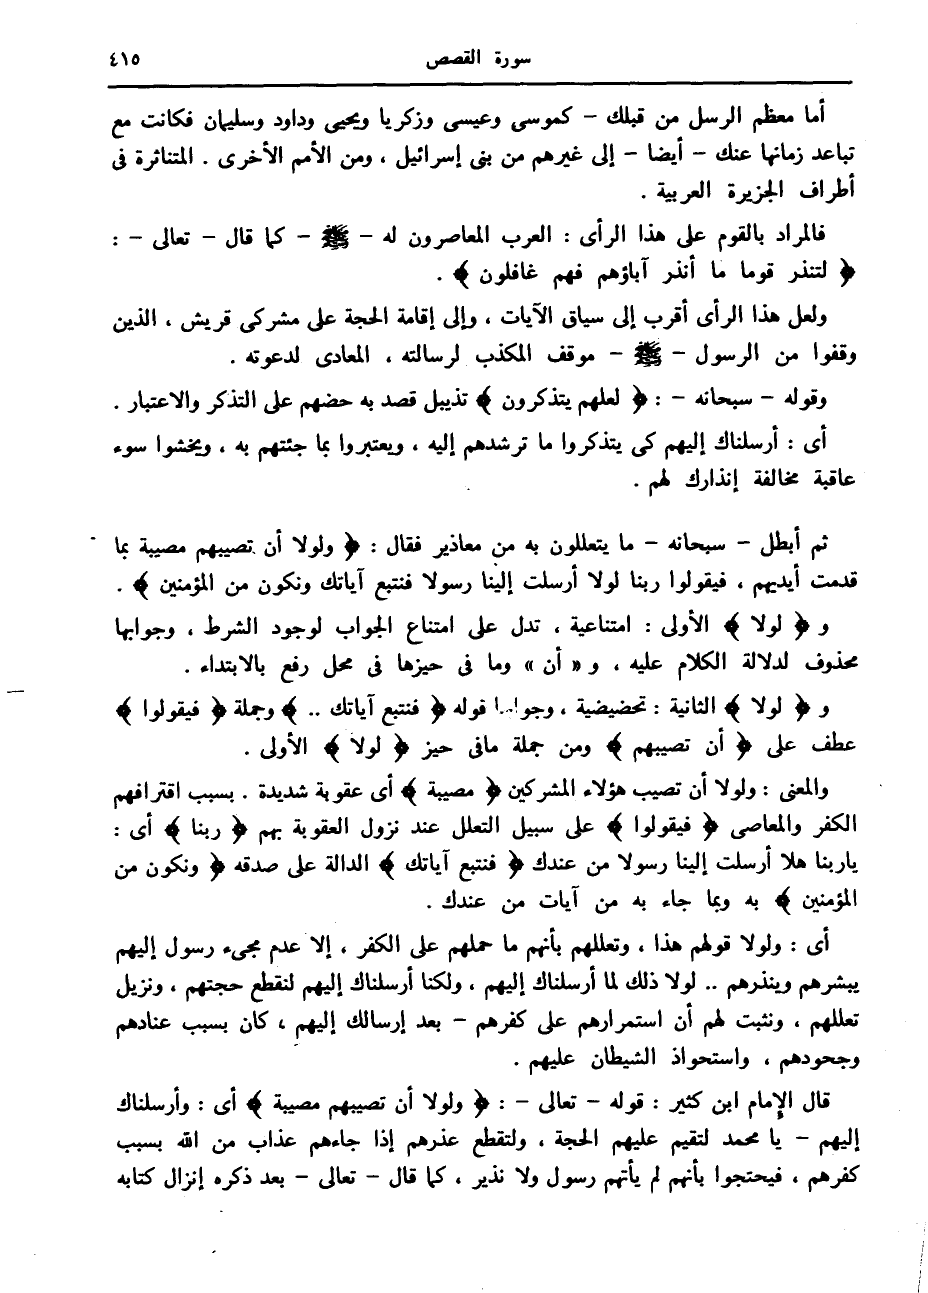 سورة القصص ٤١٥
أما معظم الرسل من قبلك - كموسى وعيسى وزكريا ويحيى وداود وسليمان فكانت مع
تباعد زمانها عنك - أيضا - إلى غيرهم من بنى إسرائيل ، ومن الأمم الأخرى . المتناثرة فى
أطراف الجزيرة العربية .
فالمراد بالقوم على هذا الرأى : العرب المعاصرون له - ﷺ - كما قال - تعالى - :
﴿ لتنذر قوما ما أنذر آباؤهم فهم غافلون ﴾ .
ولعل هذا الرأى أقرب إلى سياق الآيات ، وإلى إقامة الحجة على مشركى قريش ، الذين
وقفوا من الرسول - ﷺ - موقف المكذب لرسالته ، المعادى لدعوته .
وقوله - سبحانه - : ﴿ لعلهم يتذكرون ﴾ تذييل قصد به حضهم على التذكر والاعتبار .
أى : أرسلناك إليهم كى يتذكروا ما ترشدهم إليه ، ويعتبروا بما جئتهم به ، ويخشوا سوء
عاقبة مخالفة إنذارك لهم .
ثم أبطل - سبحانه - ما يتعللون به من معاذير فقال : ﴿ ولولا أن تصيبهم مصيبة بما
قدمت أيديهم ، فيقولوا ربنا لولا أرسلت إلينا رسولا فنتبع آياتك ونكون من المؤمنين ﴾ .
و ﴿ لولا ﴾ الأولى : امتناعية ، تدل على امتناع الجواب لوجود الشرط ، وجوابها
محذوف لدلالة الكلام عليه ، و « أن » وما فى حيزها فى محل رفع بالابتداء .
و ﴿ لولا ﴾ الثانية : تحضيضية ، وجوابها قوله ﴿ فنتبع آياتك .. ﴾ وجملة ﴿ فيقولوا ﴾
عطف على ﴿ أن تصيبهم ﴾ ومن جملة مافى حيز ﴿ لولا ﴾ الأولى .
والمعنى : ولولا أن تصيب هؤلاء المشركين ﴿ مصيبة ﴾ أى عقوبة شديدة . بسبب اقترافهم
الكفر والمعاصى ﴿ فيقولوا ﴾ على سبيل التعلل عند نزول العقوبة بهم ﴿ ربنا ﴾ أى :
ياربنا هلا أرسلت إلينا رسولا من عندك ﴿ فنتبع آياتك ﴾ الدالة على صدقه ﴿ ونكون من
المؤمنين ﴾ به وبما جاء به من آيات من عندك .
أى : ولولا قولهم هذا ، وتعللهم بأنهم ما حملهم على الكفر ، إلا عدم مجىء رسول إليهم
يبشرهم وينذرهم .. لولا ذلك لما أرسلناك إليهم ، ولكنا أرسلناك إليهم لنقطع حجتهم ، ونزيل
تعللهم ، ونثبت لهم أن استمرارهم على كفرهم - بعد إرسالك إليهم ، كان بسبب عنادهم
وجحودهم ، واستحواذ الشيطان عليهم .
قال الإمام ابن كثير : قوله - تعالى - : ﴿ ولولا أن تصيبهم مصيبة ﴾ أى : وأرسلناك
إليهم - يا محمد لتقيم عليهم الحجة ، ولتقطع عذرهم إذا جاءهم عذاب من الله بسبب
كفرهم ، فيحتجوا بأنهم لم يأتهم رسول ولا نذير ، كما قال - تعالى - بعد ذكره إنزال كتابه